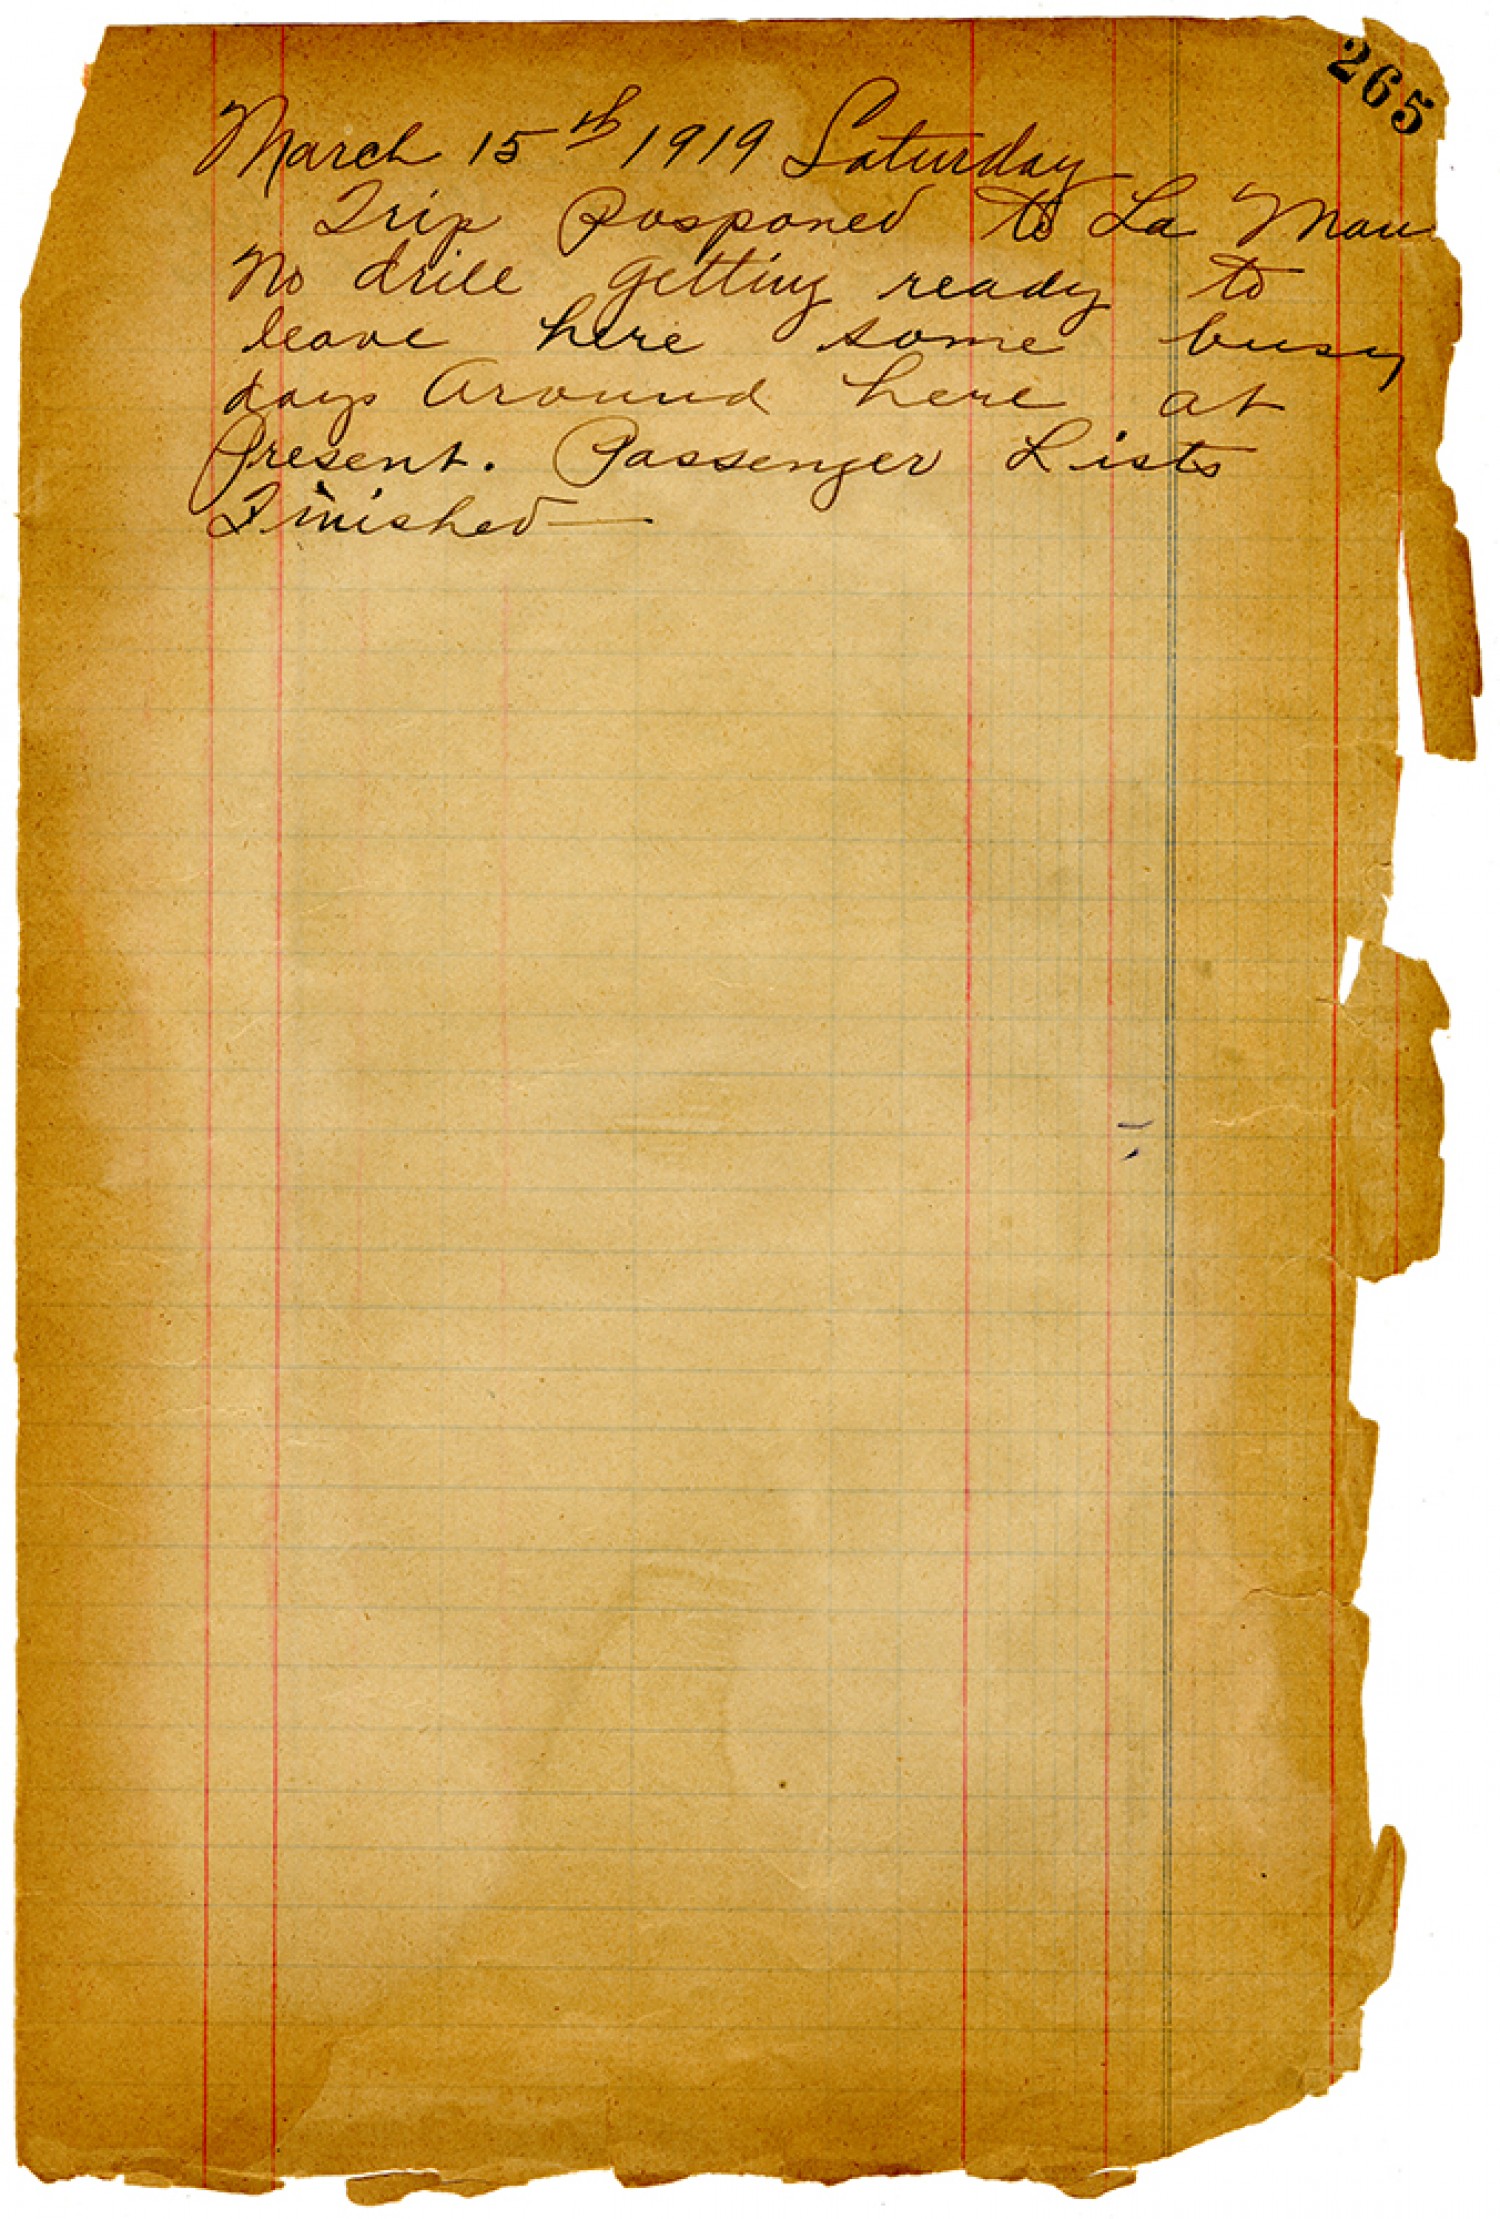 265
March 15th 1919 Saturday
Trip Posponed to La Man
No drill getting ready to
leave here some busy
days Around here at
Present. Passenger Lists
Finished—